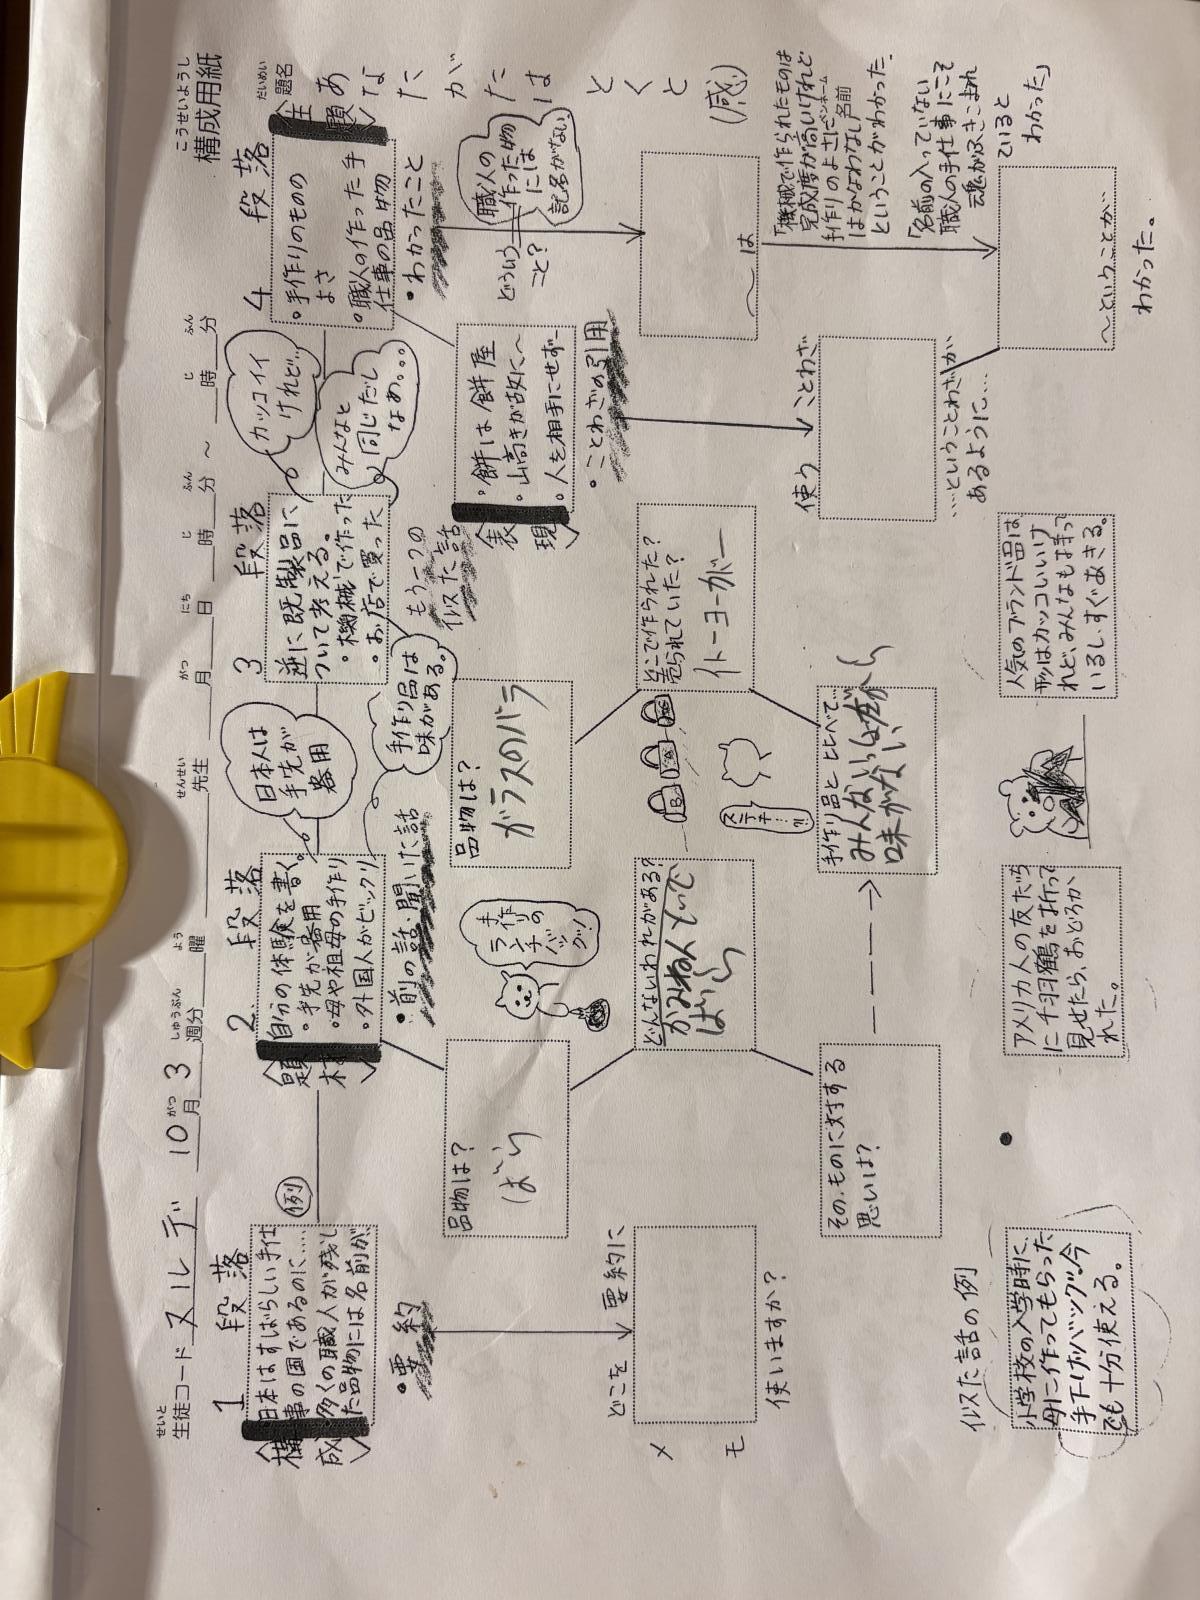 こうせいようし
構成用紙
せいと
生徒コード ヌルデ 10月 3週分 曜 先生 月 日 時 分 ～ 時 分
がつ しゅうぶん よう せんせい がつ にち じ ふん じ ふん
だいめい
題名
あなたがたはとくと(感)
1段落
〈構成〉
日本はすばらしい手仕
事の国であるのに……
多くの職人が残し
た品物には名前が、
例
・要約
どこを要約に
使いますか?
メモ
2段落
〈題材〉
自分の体験を書く。
・手先が器用
・母や祖母の手作り
・外国人がビックリ
日本人は
手先が
器用
手作り品は
味がある。
・前の話、聞いた話
品物は?
ばいら
手作りの
ランチ
バッグ!
どんないわれがある?
その、ものに対する
思いは?
3段落
逆に既製品に
ついて考える。
・機械で作った
・お店で買った
カッコイイ
けれど…
みんなと
同じだし
なあ。。。
もう一つの
似た話
品物は?
ガラスのバラ
どこで作られた?
売られていた?
イトーヨーガー
ステキ…?!
手作り品と比べて…
味がない
4段落
〈主題〉
・手作りのものの
よさ
・職人の作った手
仕事の品物
・わかったこと
職人の
作った物
には
記名がない
どういう
こと?
～は
「機械で作られたものは
完成度が高いけれど
手作りのよさには
かなわない」
ということがわかった。
「名前の入っていない
職人の手仕事にこそ
魂がふきこまれ
ていると
わかった」
～ということが、
わかった。
〈表現〉
・餅は餅屋
・山高きが故に～
・人を相手にせず―
・ことわざの引用
使うことわざ
……ということわざが、
あるように……
似た話の例
小学校の入学時に、
母に作ってもらった
手下げバッグ。今
でも十分使える。
アメリカ人の友だち
に千羽鶴を折って
見せたら、おどろか
れた。
人気のブランド品は
形はカッコいいけ
れど、みんなも持って
いるし、すぐあきる。